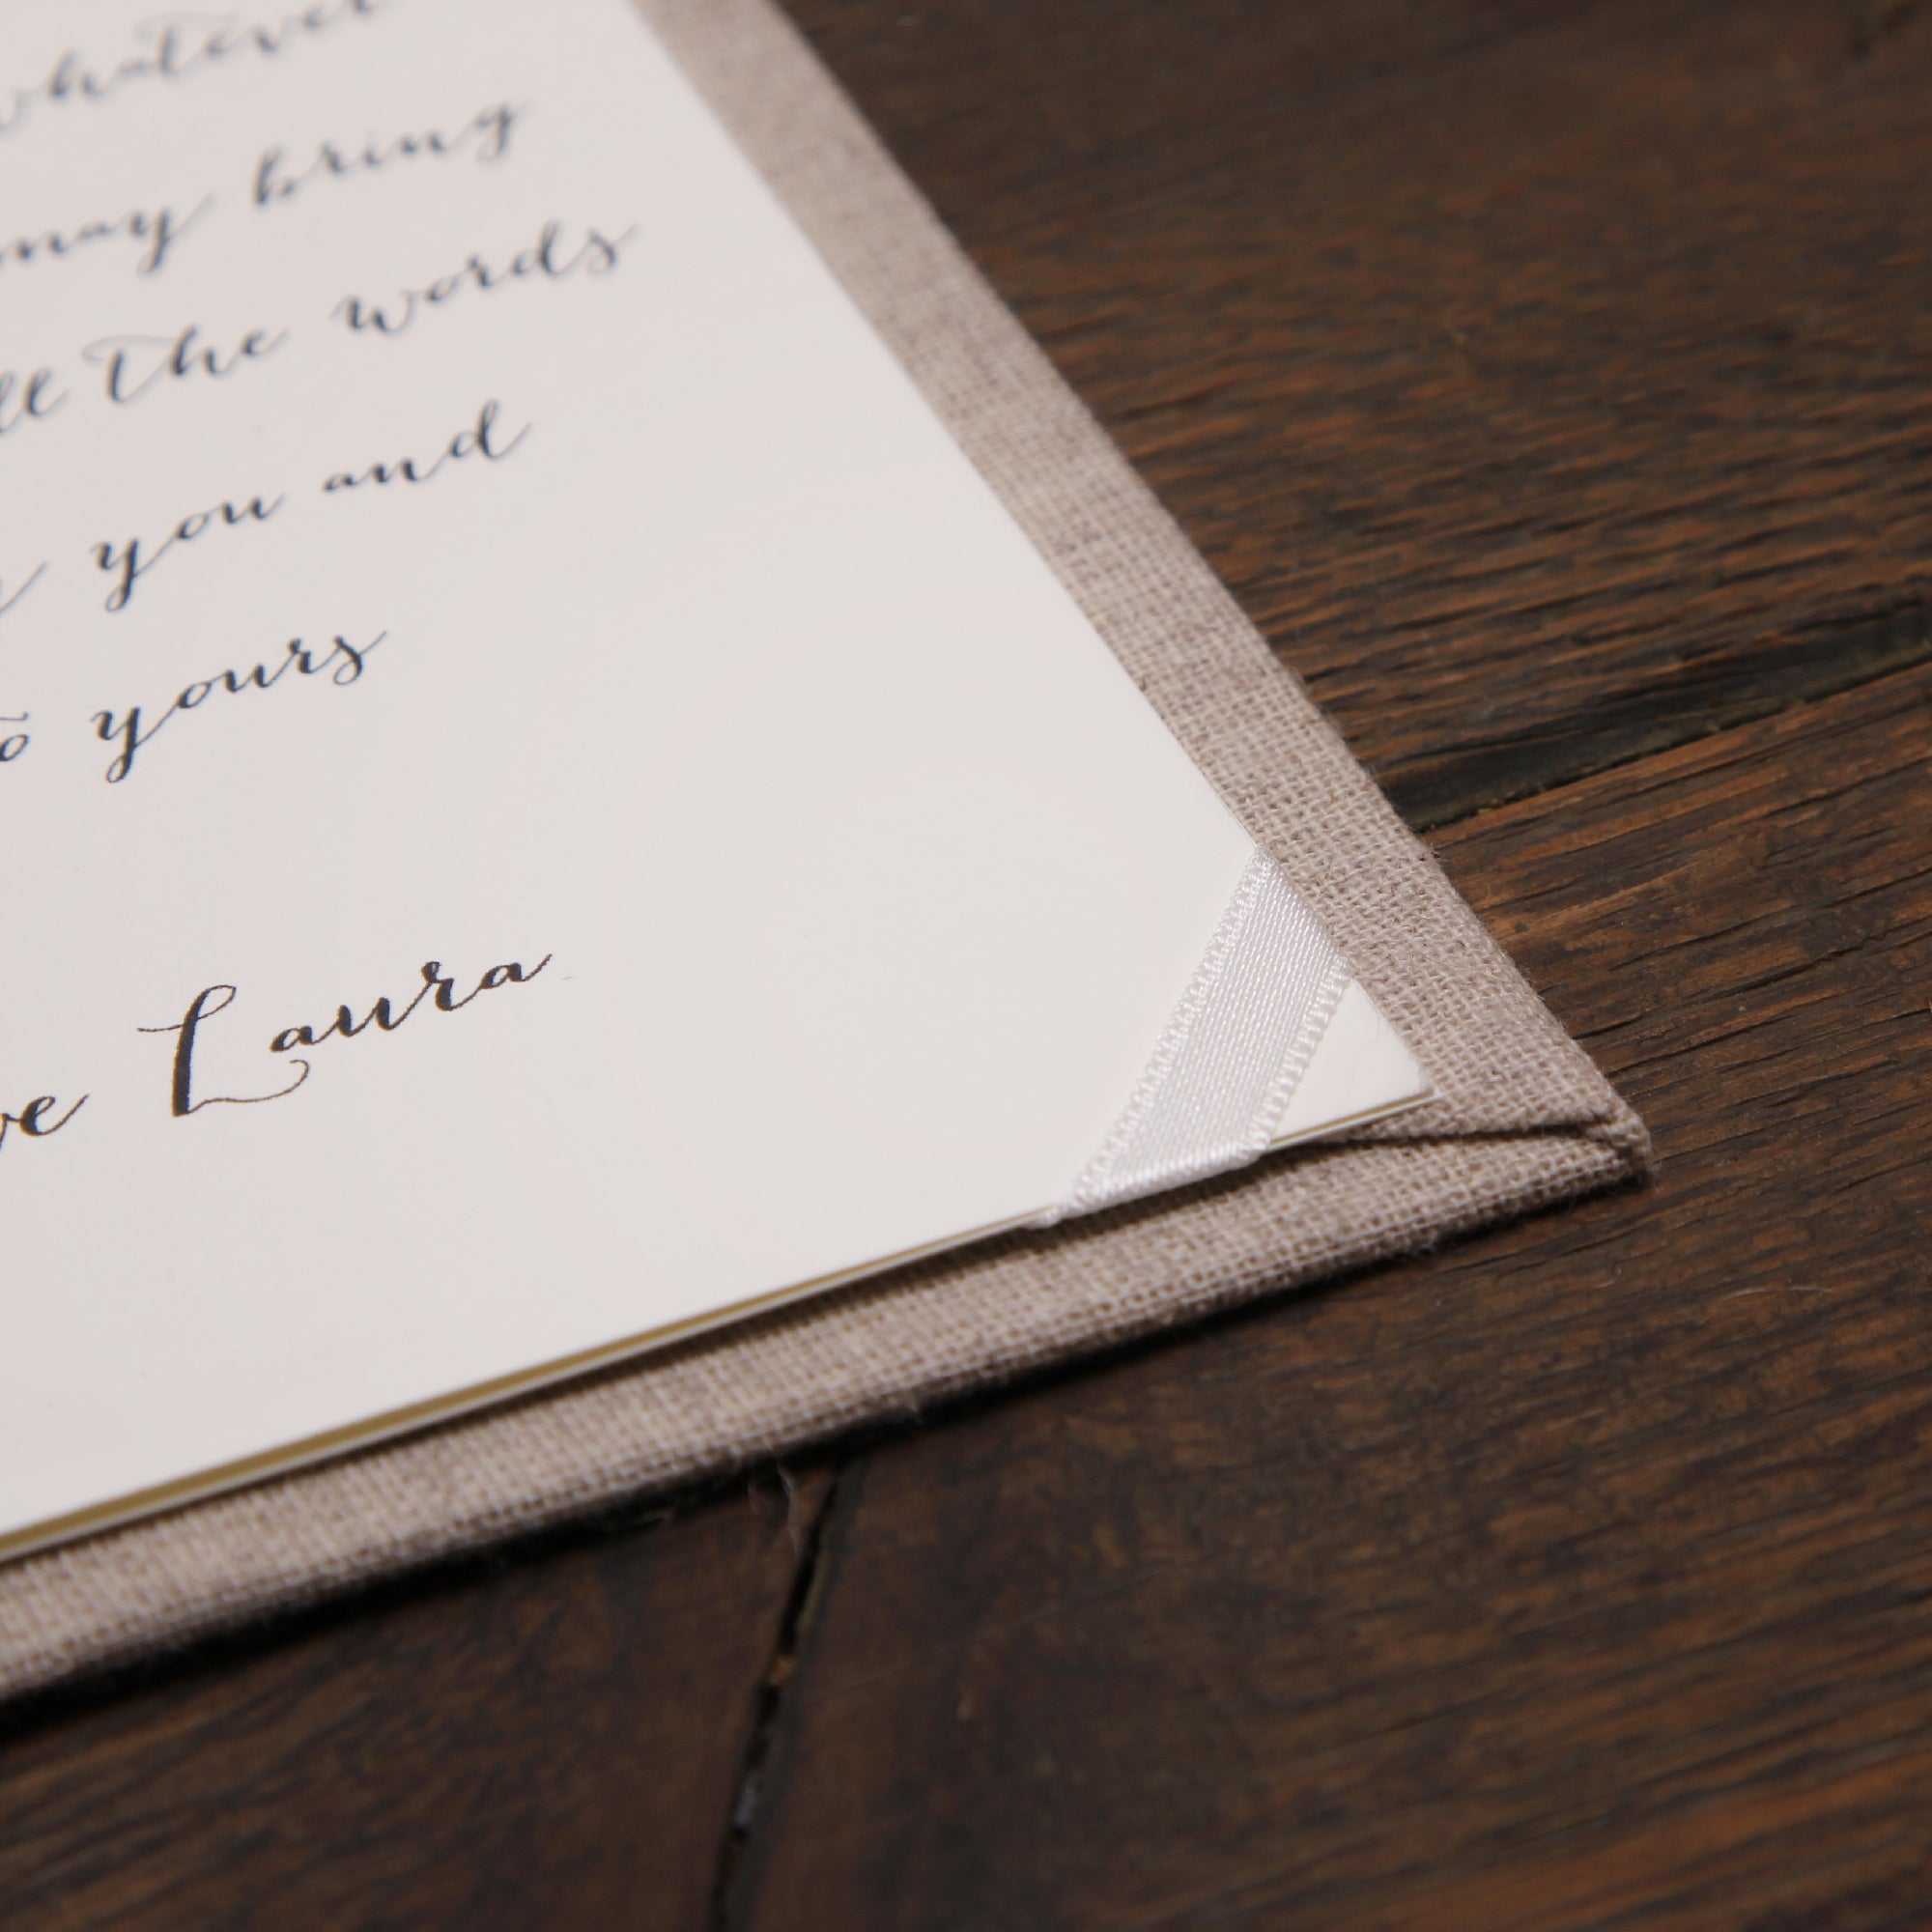 whatever
may bring
the words
you and
yours
Laura